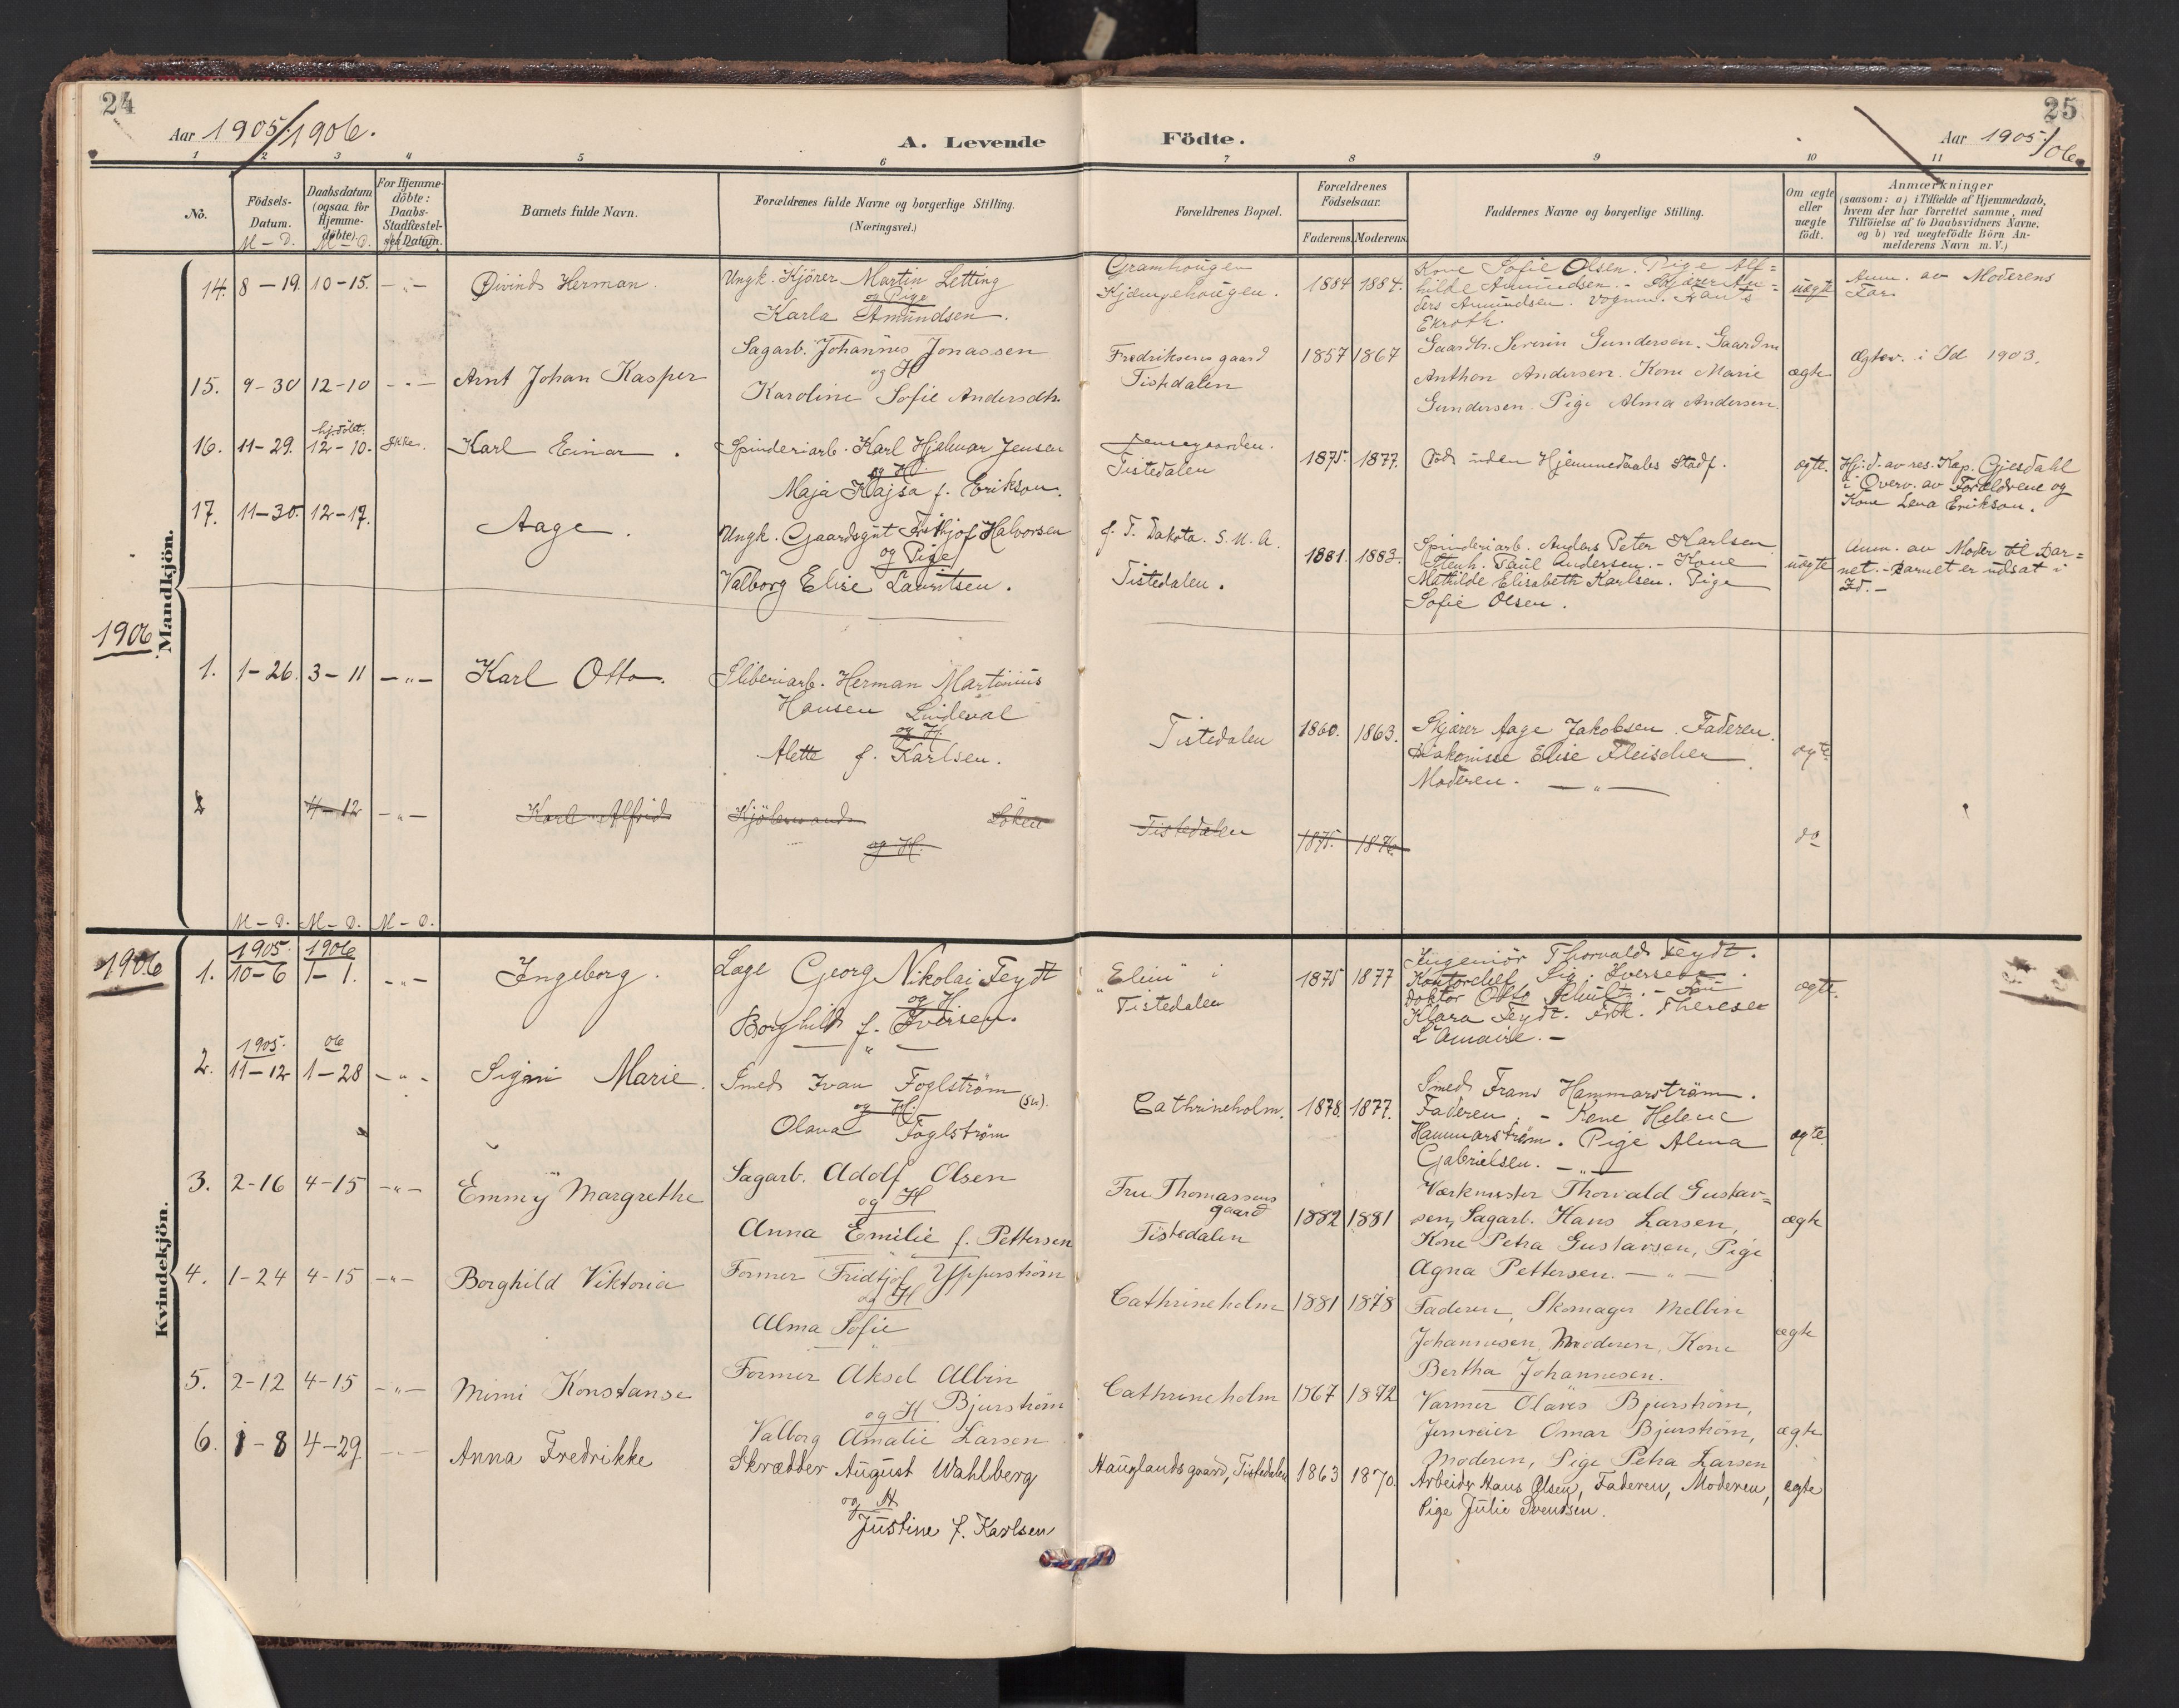 24
Aar 1905/1906.
A. Levende
Födte.
25
Aar 1905/06.
1 2 3 4 5 6 7 8 9 10 11
No.
Födsels-
Datum.
M – D.
Daabsdatum
(ogsaa for
Hjemme-
döbte).
M – D.
For Hjemme-
döbte:
Daabs-
Stadfæstel-
ses Datum.
Barnets fulde Navn.
Forældrenes fulde Navne og borgerlige Stilling.
(Næringsvei.)
Forældrenes Bopæl.
Forældrenes
Födselsaar.
Faderens. Moderens.
Faddernes Navne og borgerlige Stilling.
Om ægte
eller
uægte
födt.
Anmærkninger
(saasom: a) i Tilfælde af Hjemmedaab,
hvem der har forrettet samme, med
Tilföielse af to Daabsvidners Navne,
og b) ved uægtefödte Börn An-
melderens Navn m. V.)
Mandkjön.
14. 8 – 19. 10 – 15. – " – Øivind Herman.
Ungk. Kjörer Martin Letting
og Pige
Karla Amundsen.
Gramhougen
Kjæmpehougen.
1884 1884.
Kone Sofie Olsen. Pige Alf=
hilde Amundsen. – Kjörer An=
ders Amundsen. Vognm. Hans
Ekroth.
uægte
Anm. av Moderens
Far.
15. 9 – 30 12 – 10 – " – Arnt Johan Kasper
Sagarb. Johannes Jonassen
og H
Karoline Sofie Andersdtr.
Fredriksens gaard
Tistedalen
1857 1867
Gaardbr. Severin Gundersen. Gaardm
Anthon Andersen. Kone Marie
Gundersen. Pige Alma Andersen.
ægte
Ægtev. i Id 1903.
16. 11 – 29. hj.döbt. 12 – 10. Ikke. Karl Einar.
Spinderiarb. Karl Hjalmar Jensen
og H.
Maja Kajsa f. Erikson.
Jensegaarden.
Tistedalen
1875. 1877.
Död uden Hjemmedaabs Stadf.
ægte.
Hj.d. av res. Kap. Gjesdahl
i Overv. av Forældrene og
Kone Lena Erikson.
17. 11 – 30. 12 – 17. Aage.
Ungk. Gaardsgut Fritjof Halvorsen
og Pige
Valborg Elise Lauritsen.
f. T. Dakota. S. U. A.
Tistedalen.
1881. 1883.
Spinderiarb. Anders Peter Karlsen
Stenh. Paul Andersen. – Kone
Mathilde Elisabeth Karlsen. Pige
Sofie Olsen.
uægte
Anm. av Moder til Bar=
net. – Barnet er udsat i
Id. –
1906
1. 1 – 26. 3 – 11 – " – Karl Otto.
Sliberiarb. Herman Martinius
Hansen Lindeval
og H.
Alette f. Karlsen.
Tistedalen
1860. 1863.
Skjærer Aage Jakobsen. Faderen.
Diakonisse Elise Fleischer
Moderen. – " –
ægte.
2 4 – 12 – " – Karl Alfrid
Kjöbmand Löken
og H.
Tistedalen
1875. 1876.
do
M – D. M – D. M – D.
Kvindekjön.
1906
1905 1906
1. 10 – 6 1 – 1. – " – Ingeborg.
Læge Georg Nikolai Feydt
og H
Borghild f. Iversen.
"Elim" i
Tistedalen
1875 1877
Ingeniör Thorvald Feydt.
Kontorchef Sig. Iversen.
Doktor Otto Schultz. – Fru
Klara Feydt. Frk. Therese
L'Amaire. –
ægte.
1905. 06
2. 11 – 12 1 – 28 – " – Signi Marie.
Smed Ivan Foglström (Sv).
og H.
Olava Foglström
Cathrineholm.
1878. 1877.
Smed Frans Hammarström.
Faderen. – Kone Helene
Hammarström. Pige Alma
Gabrielsen. – " –
ægte
3. 2 – 16 4 – 15 – " – Emmy Margrethe
Sagarb. Adolf Olsen
og H
Anna Emilie f. Pettersen
Fru Thomassens
gaard
Tistedalen
1882 1881
Værkmester Thorvald Gustav=
sen, Sagarb. Hans Larsen,
Kone Petra Gustavsen, Pige
Agna Pettersen. – " –
ægte
4. 1 – 24 4 – 15 – " – Borghild Viktoria
Former Fridtjof Ypperström
og H
Alma Sofie
Cathrineholm
1881 1878
Faderen, Skomager Melbin
Johannesen, Moderen, Kone
Bertha Johannesen.
ægte
5. 2 – 12 4 – 15 – " – Mimi Konstanse
Former Aksel Albin
og H Bjurström
Valborg Amalie Larsen
Cathrineholm
1867 1872
Varmer Olaves Bjurström,
Jernveier Omar Bjurström,
Moderen, Pige Petra Larsen
ægte
6. 1 – 8 4 – 29 – " – Anna Fredrikke
Skrædder August Wahlberg
og H
Justine f. Karlsen
Hauglandsgaard, Tistedalen
1863 1870.
Arbeider Hans Olsen, Faderen, Moderen,
Pige Julie Svendsen.
ægte